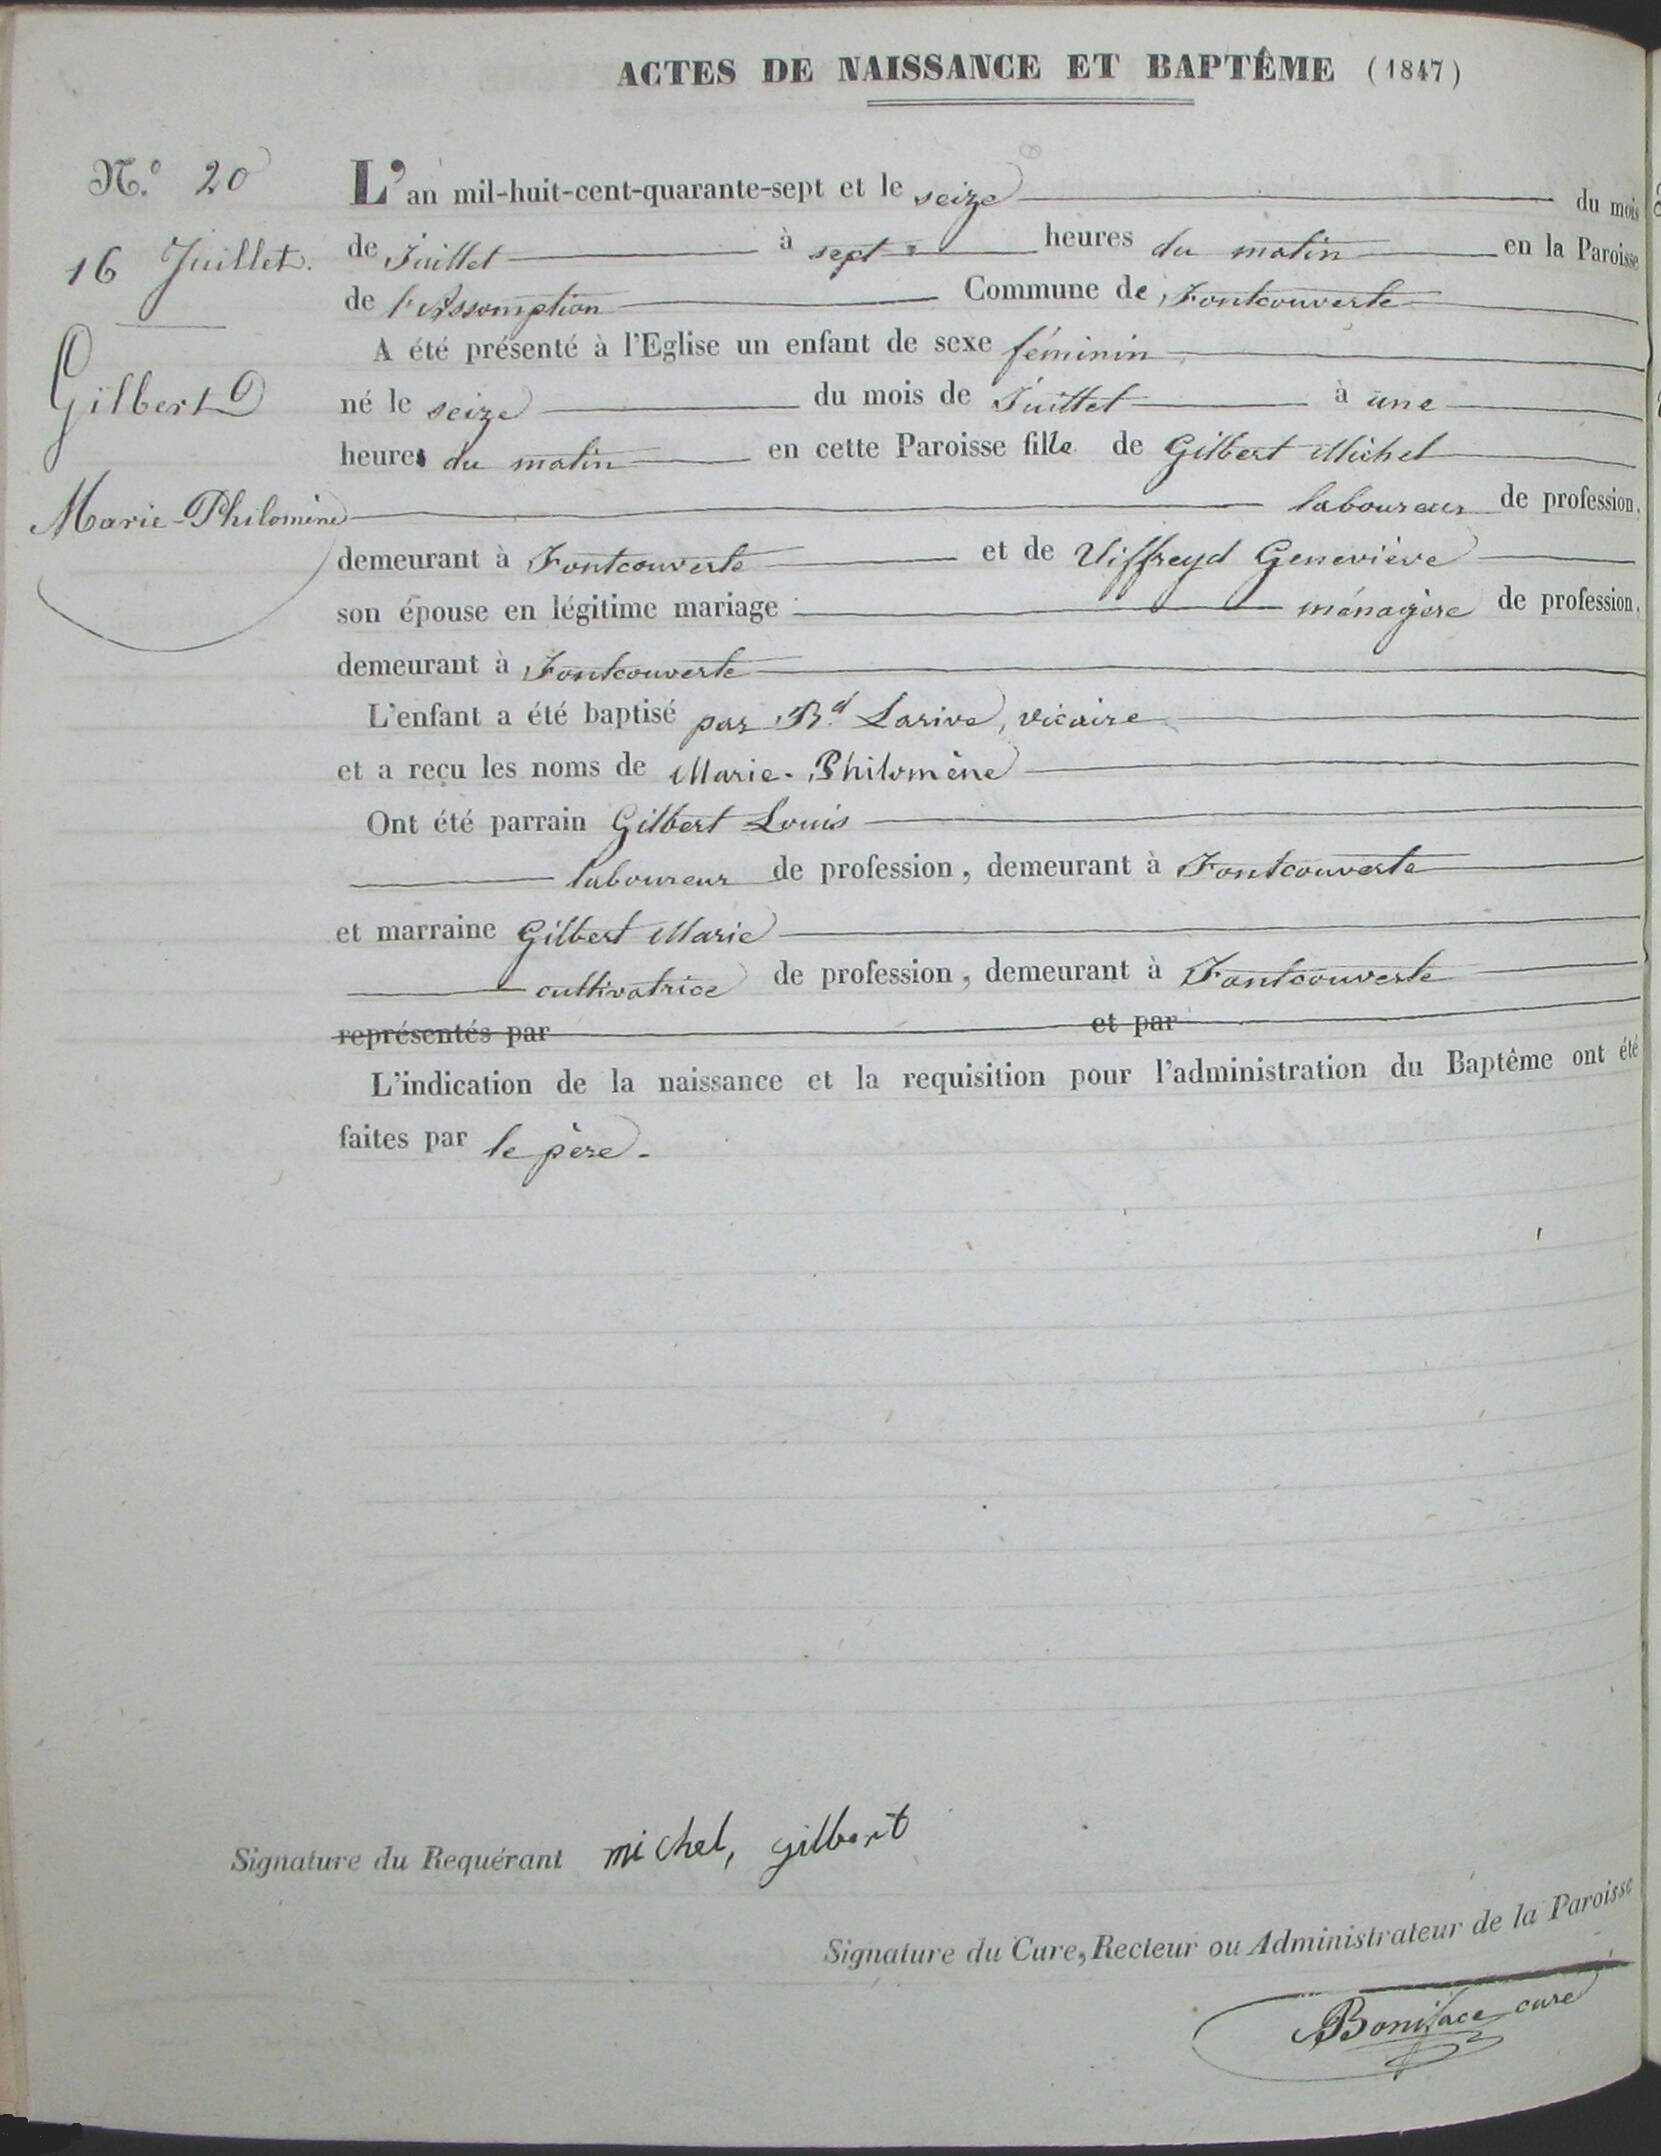 ACTES DE NAISSANCE ET BAPTÊME (1847)
N.º 20
16 Juillet.
Gilbert
Marie-Philomène
L'an mil-huit-cent-quarante-sept et le seize du mois
de Juillet à sept heures du matin en la Paroisse
de l'Assomption Commune de Fontcouverte
A été présenté à l'Eglise un enfant de sexe féminin
né le seize du mois de Juillet à une
heures du matin en cette Paroisse fille de Gilbert Michel
laboureur de profession,
demeurant à Fontcouverte et de Viffreyd Geneviève
son épouse en légitime mariage ménagère de profession,
demeurant à Fontcouverte
L'enfant a été baptisé par R.d Larive, vicaire
et a reçu les noms de Marie-Philomène
Ont été parrain Gilbert Louis
laboureur de profession, demeurant à Fontcouverte
et marraine Gilbert Marie
cultivatrice de profession, demeurant à Fontcouverte
représentés par et par
L'indication de la naissance et la requisition pour l'administration du Baptême ont été
faites par le père.
Signature du Requérant michel, gilbert
Signature du Cure, Recteur ou Administrateur de la Paroisse
Boniface curé